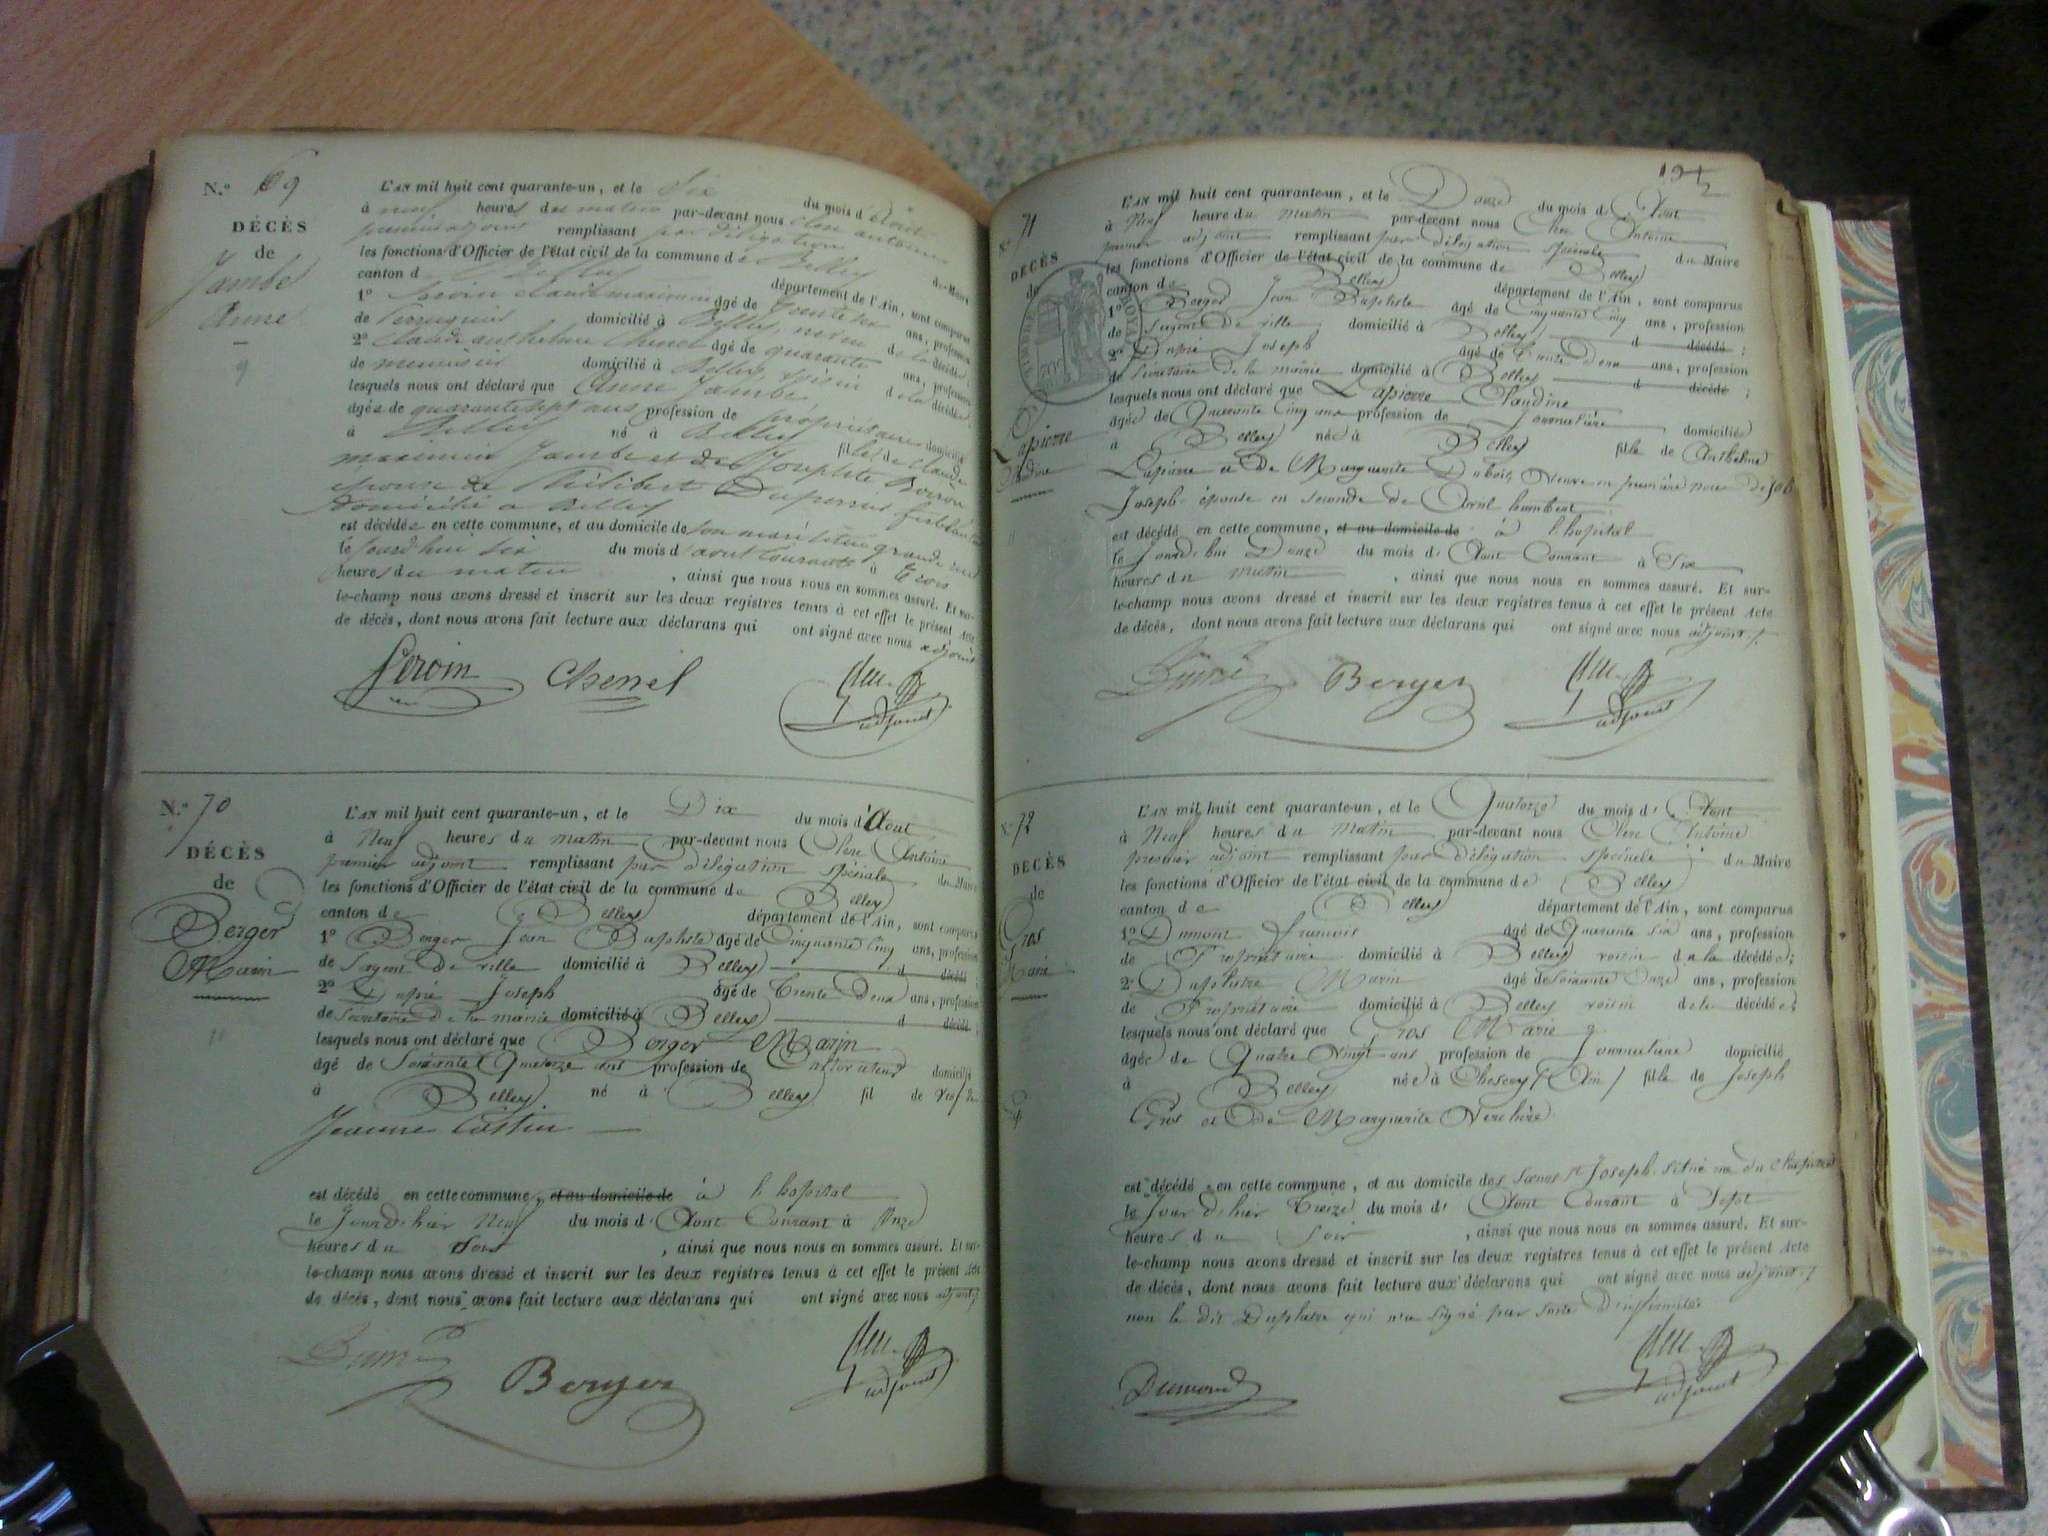 N.º 69
DÉCÈS
de
Jambe
Anne
9
L'AN mil huit cent quarante-un, et le Six du mois d'Août
à neuf heures du matin par-devant nous Clerc antoine
premier adjoint remplissant par délégation du Maire
les fonctions d'Officier de l'état civil de la commune de Belley
canton de Belley département de l'Ain, sont comparus
1º claude maximin âgé de trente six ans, profession
de perruquier domicilié à Belley, neveu de la décédée;
2º Claude anthelme Chenel âgé de quarante ans, profession
de menuisier domicilié à Belley, voisin de la décédée,
lesquels nous ont déclaré que Anne Jambe
âgée de quarante sept ans, profession de propriétaire domiciliée
à Belley né à Belley fille de Claude
maximin Jambe et de Josephte
épouse de Philibert
domicilié à Belley
est décédée en cette commune, et au domicile de son mari situé grande rue
le jourd'hui six du mois d'aout courant à trois
heures du matin, ainsi que nous nous en sommes assuré. Et sur-
le-champ nous avons dressé et inscrit sur les deux registres tenus à cet effet le présent Acte
de décès, dont nous avons fait lecture aux déclarans qui ont signé avec nous adjoint
Chenel
adjoint
N.º 70
DÉCÈS
de
Berger
Marin
11
L'AN mil huit cent quarante-un, et le Dix du mois d'Aout
à Neuf heures du matin par-devant nous Clerc Antoine
premier adjoint remplissant par délégation spéciale du Maire
les fonctions d'Officier de l'état civil de la commune de Belley
canton de Belley département de l'Ain, sont comparus
1º Berger Jean Baptiste âgé de Cinquante Cinq ans, profession
de Sergent de ville domicilié à Belley d décédé;
2º Dupré Joseph âgé de Trente Deux ans, profession
de Secretaire de la mairie domicilié à Belley d décédé;
lesquels nous ont déclaré que Berger Marin
âgé de Soixante Quatorze ans profession de Cultivateur domicilié
à Belley né à Belley fil de
Jeanne
est décédé en cette commune, et au domicile de à l'hopital
le Jourd'hier Neuf du mois d'Aout Courant à Onze
heures du Soir, ainsi que nous nous en sommes assuré. Et sur-
le-champ nous avons dressé et inscrit sur les deux registres tenus à cet effet le présent Acte
de décès, dont nous avons fait lecture aux déclarans qui ont signé avec nous adjoint
Dupré
Berger
adjoint
Nº 71
DÉCÈS
de
Lapierre
Claudine
L'AN mil huit cent quarante-un, et le Douze du mois d'Aout
à Neuf heure du matin par-devant nous Clerc Antoine
premier adjoint remplissant par délégation spéciale du Maire
les fonctions d'Officier de l'état civil de la commune de Belley
canton de Belley département de l'Ain, sont comparus
1º Berger Jean Baptiste âgé de Cinquante Cinq ans, profession
de Sergent de ville domicilié à Belley d décédé;
2º Dupré Joseph âgé de Trente Deux ans, profession
de Secretaire de la mairie domicilié à Belley d décédé;
lesquels nous ont déclaré que Lapierre Claudine
âgée de Quarante Cinq ans profession de Journalière domiciliée
à Belley née à Belley fille de Anthelme
Lapierre et de Marguerite Dubois, Veuve en première noce de
Joseph épouse en seconde de humbert
est décédé en cette commune, et au domicile de à l'hopital
le Jourd'hui Douze du mois d'Aout Courant à Six
heures du matin, ainsi que nous nous en sommes assuré. Et sur-
le-champ nous avons dressé et inscrit sur les deux registres tenus à cet effet le présent Acte
de décès, dont nous avons fait lecture aux déclarans qui ont signé avec nous adjoint
Dupré
Berger
adjoint
Nº 72
DÉCÈS
de
Gros
Marie
L'AN mil huit cent quarante-un, et le Quatorze du mois d'Aout
à Neuf heures du matin par-devant nous Clerc Antoine
premier adjoint remplissant par délégation spéciale du Maire
les fonctions d'Officier de l'état civil de la commune de Belley
canton de Belley département de l'Ain, sont comparus
1º Dumont francois âgé de Quarante Six ans, profession
de Propriétaire domicilié à Belley voisin de la décédée;
2º Duplatre Marin âgé de Soixante Onze ans, profession
de Propriétaire domicilié à Belley voisin de la décédée;
lesquels nous ont déclaré que Gros Marie
âgée de Quatre Vingt ans profession de Journalière domicilié
à Belley née à Chesery (Ain) fille de Joseph
Gros et de Marguerite
est décédé en cette commune, et au domicile des Sœurs St Joseph situé rue du Chapitre
le Jour d'hier Treize du mois d'Aout Courant à Sept
heures du Soir, ainsi que nous nous en sommes assuré. Et sur-
le-champ nous avons dressé et inscrit sur les deux registres tenus à cet effet le présent Acte
de décès, dont nous avons fait lecture aux déclarans qui ont signé avec nous adjoint
non le dit Duplatre qui n'a signé par suite d'infirmité
Dumond
adjoint